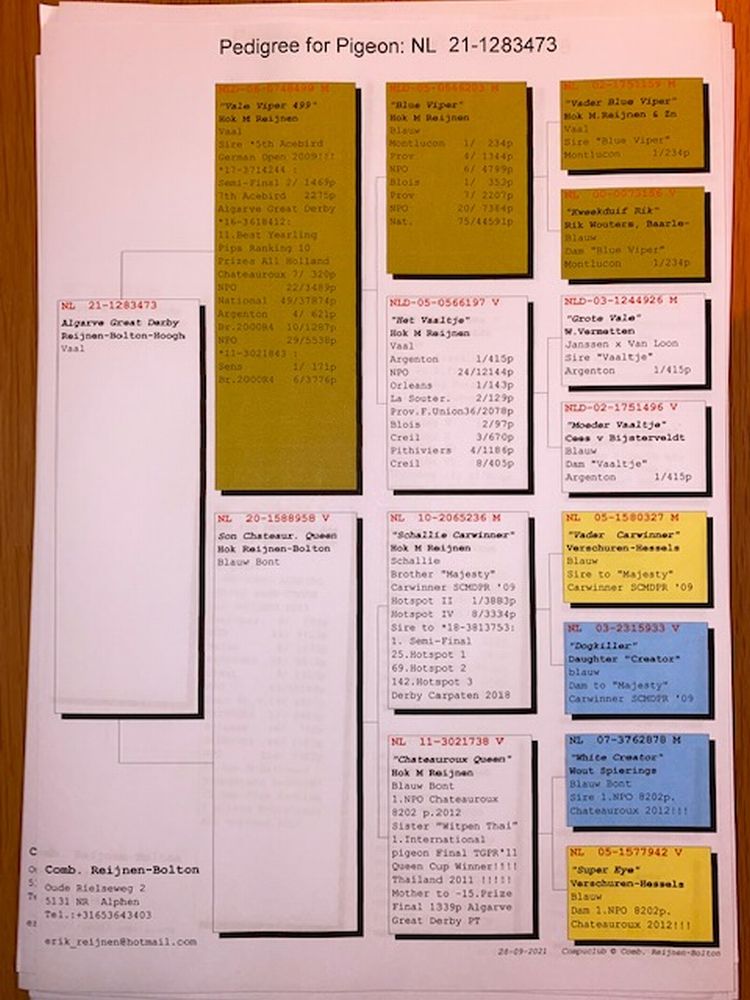 Pedigree for Pigeon: NL 21-1283473
NL 21-1283473
Algarve Great Derby
Reijnen-Bolton-Hoogh
Vaal
"Vale Viper 499"
Hok M Reijnen
Vaal
Sire *5th Acebird
German Open 2009!!!
*17-3714244 :
Semi-Final 2/ 1469p
7th Acebird 2275p
Algarve Great Derby
*16-3618412:
11.Best Yearling
Pipa Ranking 10
Prizes All Holland
Chateauroux 7/ 320p
NPO 22/3489p
National 49/37874p
Argenton 4/ 621p
Br.2000R4 10/1287p
NPO 29/5538p
*11-3021843 :
Sens 1/ 171p
Br.2000R4 6/3776p
NL 20-1588958 V
Son Chateaur. Queen
Hok Reijnen-Bolton
Blauw Bont
NLD-05-0566203 M
"Blue Viper"
Hok M Reijnen
Blauw
Montlucon 1/ 234p
Prov 4/ 1344p
NPO 6/ 4799p
Blois 1/ 352p
Prov 7/ 2207p
NPO 20/ 7384p
Nat. 75/44591p
NLD-05-0566197 V
"Het Vaaltje"
Hok M Reijnen
Vaal
Argenton 1/415p
NPO 24/12144p
Orleans 1/143p
La Souter. 2/129p
Prov.F.Union36/2078p
Blois 2/97p
Creil 3/670p
Pithiviers 4/1186p
Creil 8/405p
NL 10-2065236 M
"Schallie Carwinner"
Hok M Reijnen
Schallie
Brother "Majesty"
Carwinner SCMDPR '09
Hotspot II 1/3883p
Hotspot IV 8/3334p
Sire to *18-3813753:
1. Semi-Final
25.Hotspot 1
69.Hotspot 2
142.Hotspot 3
Derby Carpaten 2018
NL 11-3021738 V
"Chateauroux Queen"
Hok M Reijnen
Blauw Bont
1.NPO Chateauroux
8202 p.2012
Sister "Witpen Thai"
1.International
pigeon Final TGPR'11
Queen Cup Winner!!!!
Thailand 2011 !!!!!
Mother to -15.Prize
Final 1339p Algarve
Great Derby PT
02-1751159 M
"Vader Blue Viper"
Hok M.Reijnen & Zn
Vaal
Sire "Blue Viper"
Montlucon 1/234p
"Kweekduif Rik"
Rik Wouters, Baarle-
Blauw
Dam "Blue Viper"
Montlucon 1/234p
NLD-03-1244926 M
"Grote Vale"
W.Vermetten
Janssen x Van Loon
Sire "Vaaltje"
Argenton 1/415p
NLD-02-1751496 V
"Moeder Vaaltje"
Cees v Bijsterveldt
Blauw
Dam "Vaaltje"
Argenton 1/415p
NL 05-1580327 M
"Vader Carwinner"
Verschuren-Hessels
Blauw
Sire to "Majesty"
Carwinner SCMDPR '09
NL 03-2315933 V
"Dogkiller"
Daughter "Creator"
blauw
Dam to "Majesty"
Carwinner SCMDPR '09
NL 07-3762878 M
"White Creator"
Wout Spierings
Blauw Bont
Sire 1.NPO 8202p.
Chateauroux 2012!!!
NL 05-1577942 V
"Super Eye"
Verschuren-Hessels
Blauw
Dam 1.NPO 8202p.
Chateauroux 2012!!!
Comb. Reijnen-Bolton
Oude Rielseweg 2
5131 NR Alphen
Tel.:+31653643403
erik_reijnen@hotmail.com
28-09-2021 Compuclub © Comb. Reijnen-Bolton